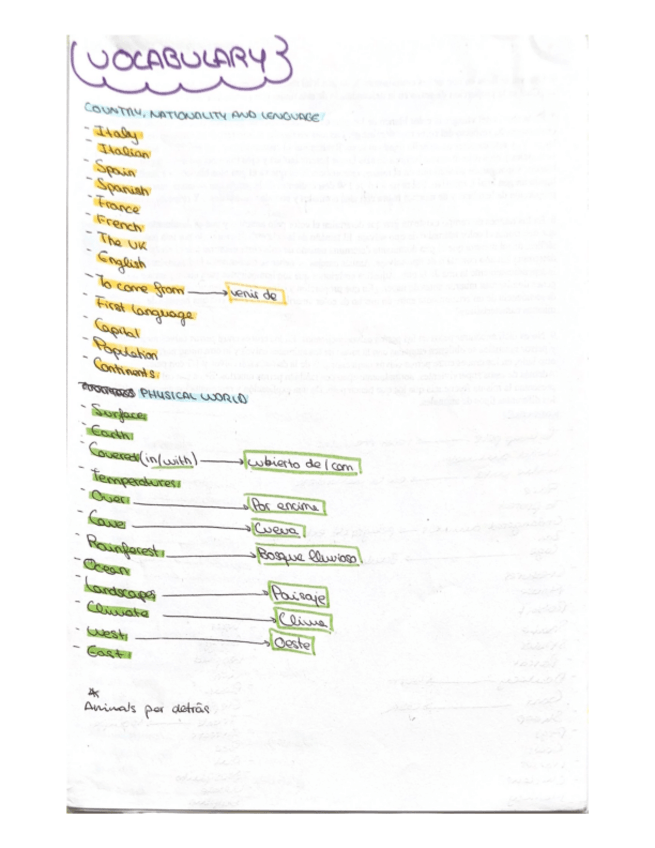 VOCABULARY
COUNTRY, NATIONALITY AND LENGUAGE
- Italy
- Italian
- Spain
- Spanish
- France
- French
- The UK
- English
- To come from → venir de
- First Language
- Capital
- Population
- Continents
PHYSICAL WORLD
- Surface
- Earth
- Covered (in/with) → cubierto de/con
- Temperatures
- Over → Por encima
- Cave → Cueva
- Rainforest → Bosque lluvioso
- Ocean
- Landscapes → Paisaje
- Climate → Clima
- West → Oeste
- East
*
Animals por detrás